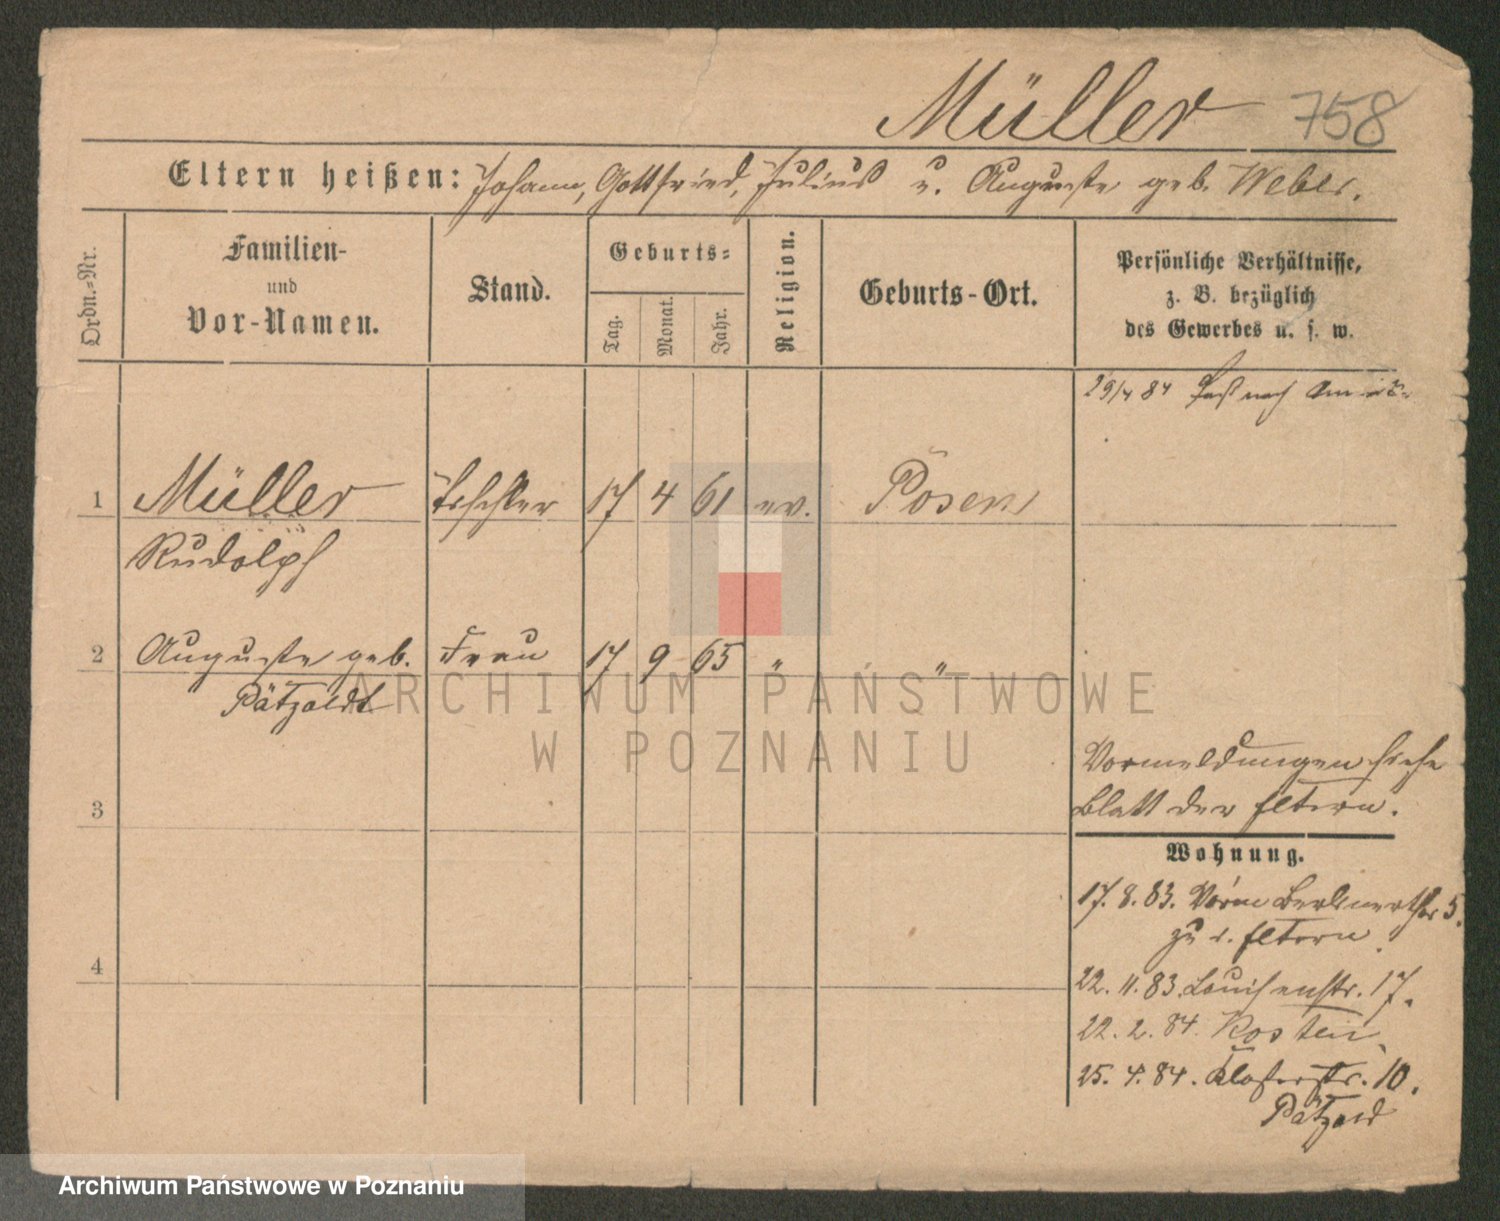 Müller 758
Eltern heißen: Johann, Gottfried, Julius u. Auguste geb. Weber.
Ordn.-Nr.
Familien-
und
Vor-Namen.
Stand.
Geburts-
Tag.
Monat.
Jahr.
Religion.
Geburts-Ort.
Persönliche Verhältnisse,
z. B. bezüglich
des Gewerbes u. s. w.
29/4 84 Paß nach
1 Müller Tischler 17 4 61 ev. Posen
Rudolph
2 Auguste geb. Frau 17 9 65 " "
Pätzoldt
ARCHIWUM PAŃSTWOWE
W POZNANIU
Vormeldungen siehe
3 Blatt der Eltern.
Wohnung.
17. 8. 83. Berlinerthor 5.
zu d. Eltern.
4
22. 11. 83. Louisenstr. 17.
22. 2. 84. Kosten
25. 4. 84. Klosterstr. 10.
Pätzold
Archiwum Państwowe w Poznaniu